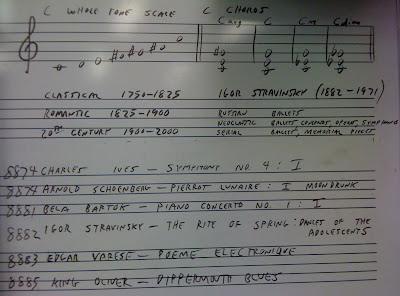 C WHOLE TONE SCALE C CHORDS
Caug C Cm Cdim
CLASSICAL 1750-1825 IGOR STRAVINSKY (1882-1971)
ROMANTIC 1825-1900 RUSSIAN BALLETS
20TH CENTURY 1900-2000 NEOCLASSIC BALLETS, CONCERTOS, OPERA, SYMPHONIES
SERIAL BALLET, MEMORIAL PIECES
8874 CHARLES IVES - SYMPHONY NO. 4: I
8874 ARNOLD SCHOENBERG - PIERROT LUNAIRE: I MOONDRUNK
8881 BELA BARTOK - PIANO CONCERTO NO. 1: I
8882 IGOR STRAVINSKY - THE RITE OF SPRING: DANCES OF THE
ADOLESCENTS
8883 EDGAR VARESE - POEME ELECTRONIQUE
8885 KING OLIVER - DIPPERMOUTH BLUES